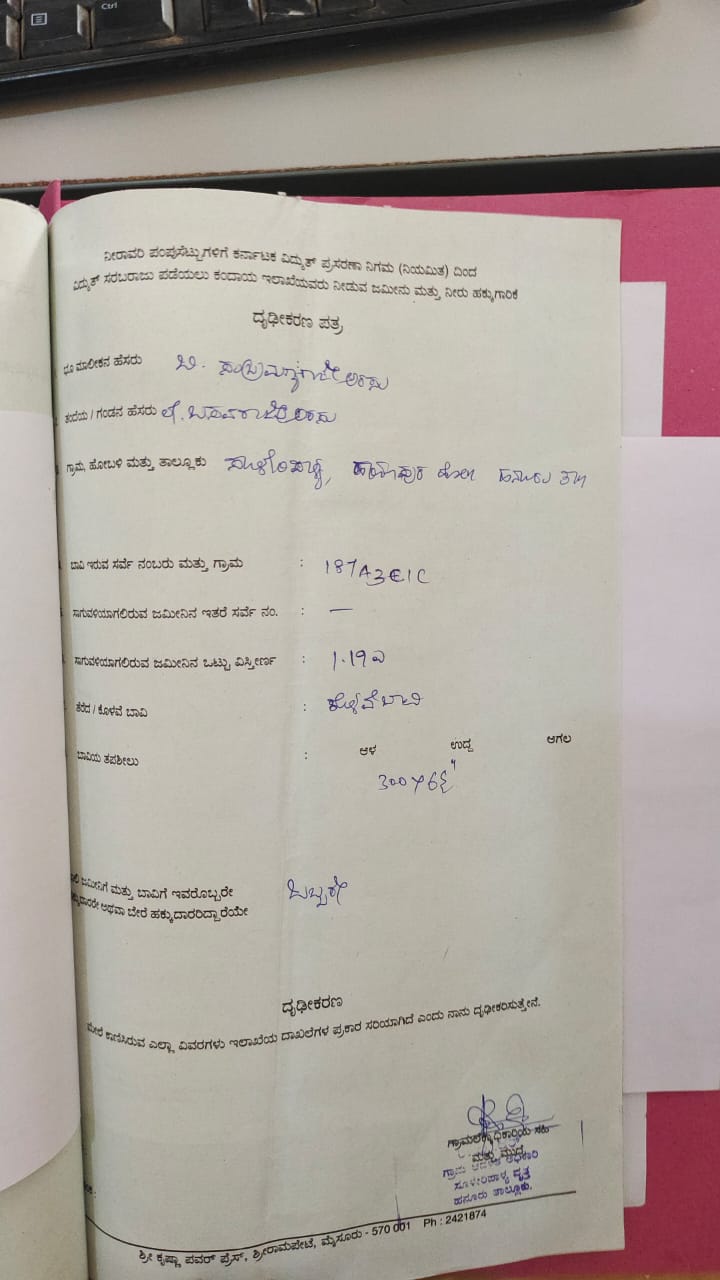 Ctrl
ನೀರಾವರಿ ಪಂಪುಸೆಟ್ಟುಗಳಿಗೆ ಕರ್ನಾಟಕ ವಿದ್ಯುತ್ ಪ್ರಸರಣಾ ನಿಗಮ (ನಿಯಮಿತ) ದಿಂದ
ವಿದ್ಯುತ್ ಸರಬರಾಜು ಪಡೆಯಲು ಕಂದಾಯ ಇಲಾಖೆಯವರು ನೀಡುವ ಜಮೀನು ಮತ್ತು ನೀರು ಹಕ್ಕುಗಾರಿಕೆ
ದೃಢೀಕರಣ ಪತ್ರ
ಭೂ ಮಾಲೀಕನ ಹೆಸರು ಬಿ.
ತಂದೆಯ / ಗಂಡನ ಹೆಸರು ಲೇ.
ಗ್ರಾಮ, ಹೋಬಳಿ ಮತ್ತು ತಾಲ್ಲೂಕು ಹನೂರು ತಾ||
ಬಾವಿ ಇರುವ ಸರ್ವೆ ನಂಬರು ಮತ್ತು ಗ್ರಾಮ : 187
ಸಾಗುವಳಿಯಾಗಲಿರುವ ಜಮೀನಿನ ಇತರೆ ಸರ್ವೆ ನಂ. : —
ಸಾಗುವಳಿಯಾಗಲಿರುವ ಜಮೀನಿನ ಒಟ್ಟು ವಿಸ್ತೀರ್ಣ : 1.19 ಎ
ತೆರೆದ / ಕೊಳವೆ ಬಾವಿ : ಕೊಳವೆಬಾವಿ
ಬಾವಿಯ ತಪಶೀಲು : ಆಳ ಉದ್ದ ಅಗಲ
ಜಮೀನಿಗೆ ಮತ್ತು ಬಾವಿಗೆ ಇವರೊಬ್ಬರೇ ಒಬ್ಬರೇ
ಅಥವಾ ಬೇರೆ ಹಕ್ಕುದಾರರಿದ್ದಾರೆಯೇ
ದೃಢೀಕರಣ
ಮೇಲೆ ಕಾಣಿಸಿರುವ ಎಲ್ಲಾ ವಿವರಗಳು ಇಲಾಖೆಯ ದಾಖಲೆಗಳ ಪ್ರಕಾರ ಸರಿಯಾಗಿದೆ ಎಂದು ನಾನು ದೃಢೀಕರಿಸುತ್ತೇನೆ.
ಗ್ರಾಮಲೆಕ್ಕಾಧಿಕಾರಿಯ ಸಹಿ
ಮತ್ತು ಮುದ್ರೆ
ಗ್ರಾಮ ಆಡಳಿತ ಅಧಿಕಾರಿ
ಸೂಳೇರಿಪಾಳ್ಯ ವೃತ್ತ
ಹನೂರು ತಾಲ್ಲೂಕು.
ಶ್ರೀ ಕೃಷ್ಣಾ ಪವರ್ ಪ್ರೆಸ್, ಶ್ರೀರಾಮಪೇಟೆ, ಮೈಸೂರು - 570 001 Ph : 2421874